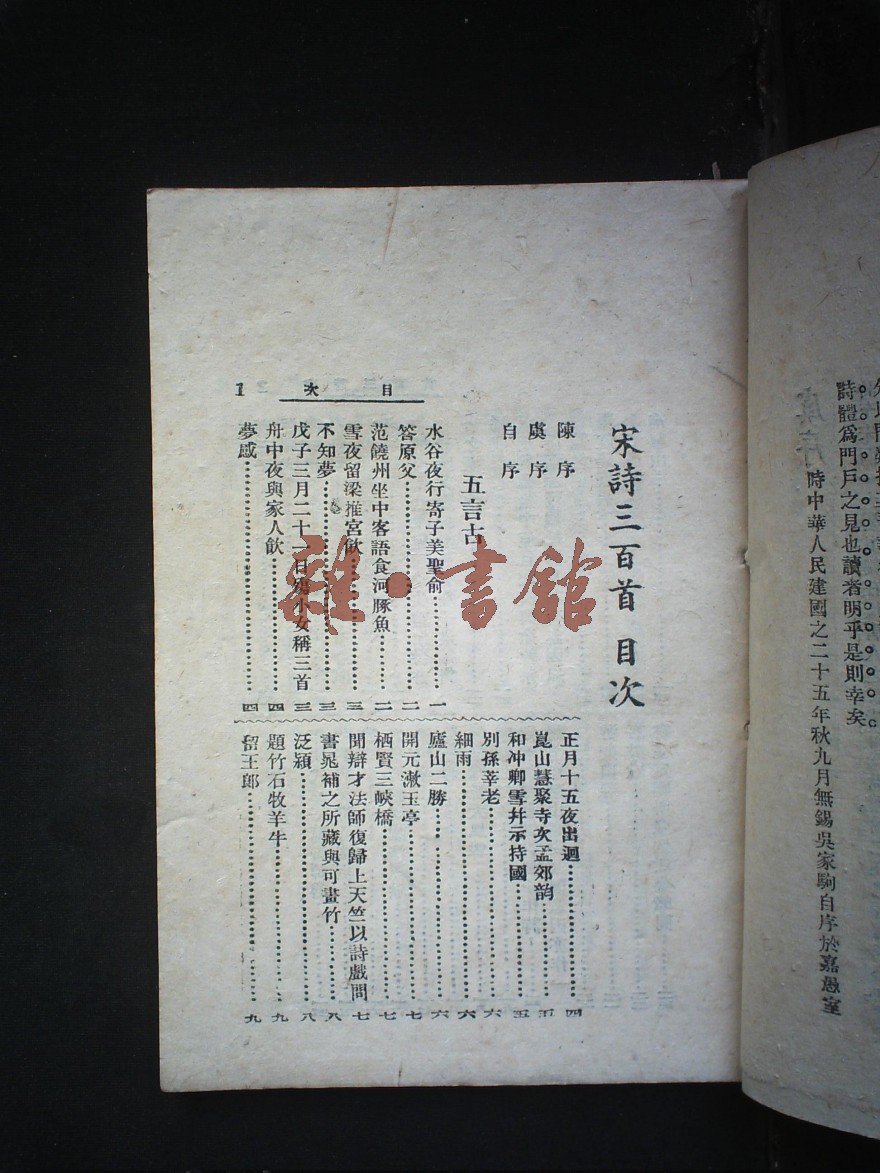 詩體爲門戶之見也讀者明乎是則幸矣
時中華人民建國之二十五年秋九月無錫吳家駒自序於嘉愚室
宋詩三百首 目次
陳序
虞序
自序
五言古
水谷夜行寄子美聖俞……一
答原父……二
范饒州坐中客語食河豚魚……二
雪夜留梁推官飲……三
不知夢……三
戊子三月二十一日殤小女稱三首……三
舟中夜與家人飲……四
夢感……四
正月十五夜出迴……四
崑山慧聚寺次孟郊韵……五
和冲卿雪幷示持國……五
別孫莘老……六
細雨……六
廬山二勝……六
開元漱玉亭……七
栖賢三峽橋……七
聞辯才法師復歸上天竺以詩戲問……七
書晁補之所藏與可畫竹……八
泛潁……八
題竹石牧羊牛……九
留王郎……九
目次
1
雜·書館